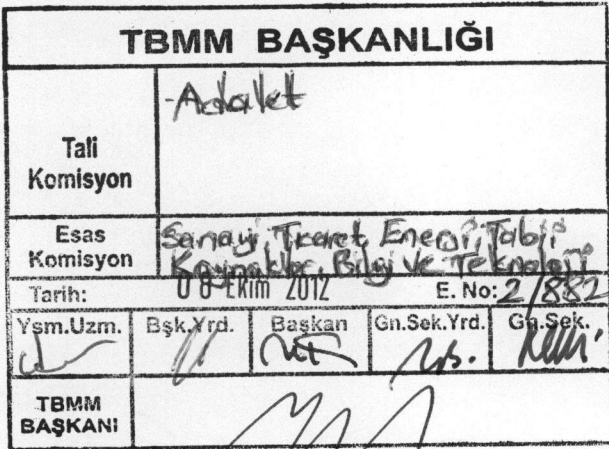 TBMM BAŞKANLIĞI
Tali Komisyon
-Adalet
Esas Komisyon
Sanayi, Ticaret, Enerji, Tabii
Kaynaklar, Bilgi ve Teknoloji
Tarih: 08 Ekim 2012 E. No: 2/882
Ysm.Uzm. Bşk.Yrd. Başkan Gn.Sek.Yrd. Gn.Sek.
TBMM
BAŞKANI